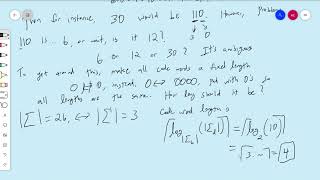 given for instance, 30 would be 110. However, problem
3 0
110 is... 6, or wait, is it 12?
6 or 12 or 30? It's ambiguous
To get around this, make all code words a fixed length
0 ↔ 0, instead, 0 ↔ 0000, pad with 0s so
all lengths are the same. How long should it be?
|Σ| = 26, ↔ |Σ'| = 3
Code word length is
⌈log_|Σ_b| (|Σ_a|)⌉ = ⌈log_2(10)⌉
= ⌈3.…⌉ = 4